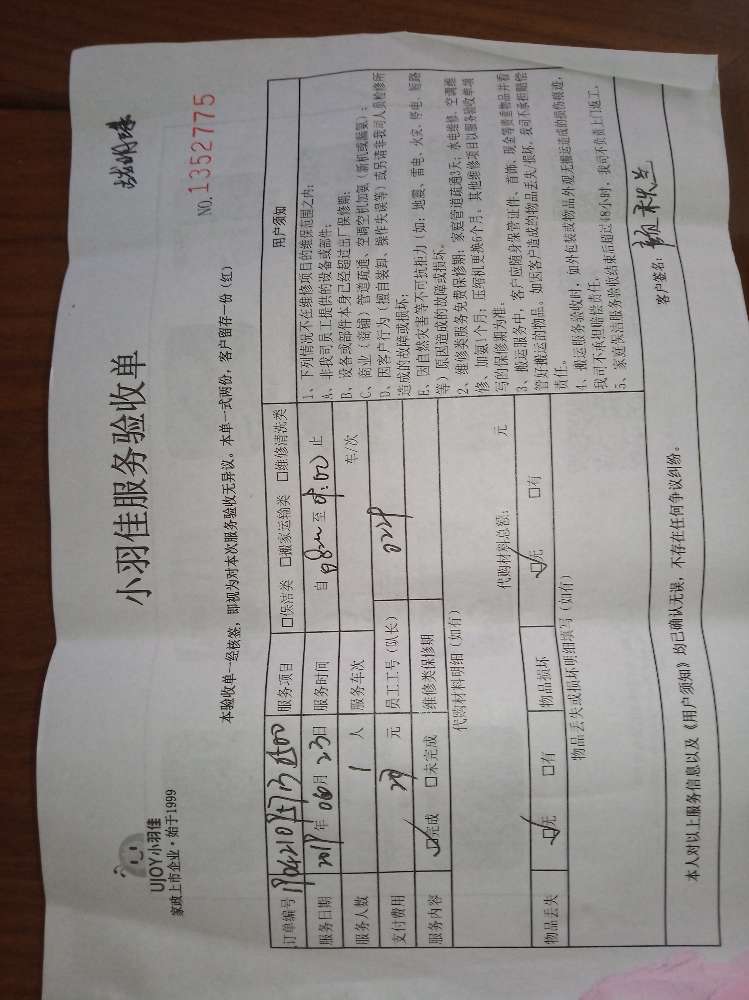 UJOY小羽佳
家政上市企业·始于1999
小羽佳服务验收单
NO.1352775
本验收单一经核签，即视为对本次服务验收无异议。本单一式两份，客户留存一份（红）
订单编号
服务项目 □保洁类 □搬家运输类 □维修清洗类
服务日期 年 06月 23日
服务时间 自 至 09:00 止
服务人数 1 人
服务车次 车/次
支付费用 元
员工工号（队长）
服务内容 □完成 □未完成
维修类保修期
代购材料明细（如有）
代购材料总额： 元
物品丢失 □无 □有
物品损坏 □无 □有
物品丢失或损坏明细填写（如有）
用户须知
1、下列情况不在维修项目的维保范围之内：
A、非我司员工提供的设备或部件；
B、设备或部件本身已经超过出厂保修期；
C、商业（商铺）管道疏通、空调空机加氨（新机或漏氨）；
D、因客户行为（擅自装卸、操作失误等）或另请非我司人员检修所
造成的故障或损坏；
E、因自然灾害等不可抗拒力（如：地震、雷电、火灾、停电、短路
等）原因造成的故障或损坏。
2、维修类服务免费保修期：家庭管道疏通3天；水电维修、空调维
修、加氨1个月；压缩机更换6个月。其他维修项目以服务验收单填
写的保修期为准。
3、搬运服务中，客户应随身保管证件、首饰、现金等贵重物品并看
管好搬运的物品。如因客户造成的物品丢失/损坏，我司不承担赔偿
责任。
4、搬运服务验收时，如外包装或物品外观无搬运造成的损伤痕迹，
我司不承担赔偿责任。
5、家庭保洁服务验收结束后超过48小时，我司不负责上门返工。
本人对以上服务信息以及《用户须知》均已确认无误，不存在任何争议纠纷。
客户签名：